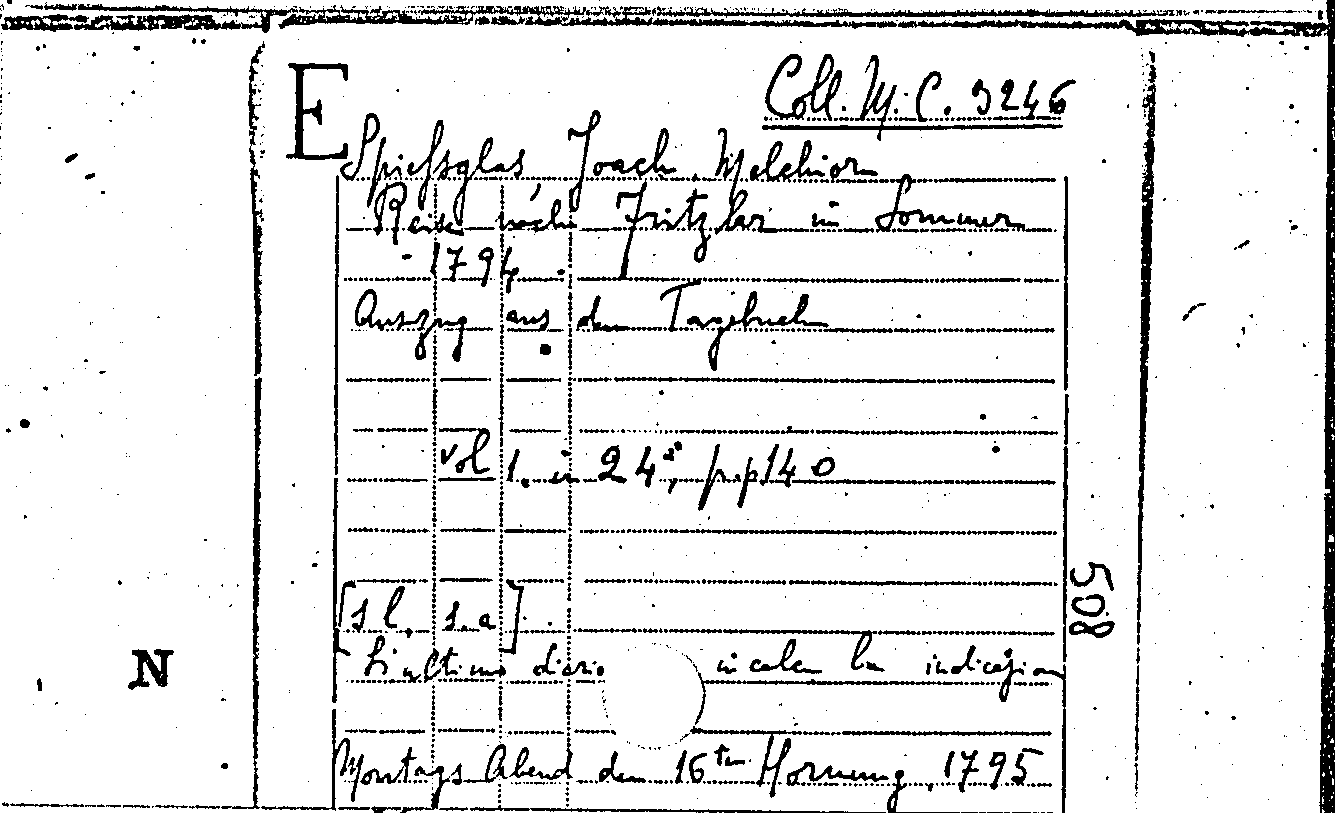 E
Coll. M. C. 3246
Spiessglas, Joach. Melchior
Reise nach Fritzlar im Sommer
1794.
Auszug aus dem Tagebuch
vol 1. in 24°, pp 140
508
[s. l., s. a]
L'ultimo diario in calce la indicazion
N
Montags Abend den 16ten Hornung, 1795